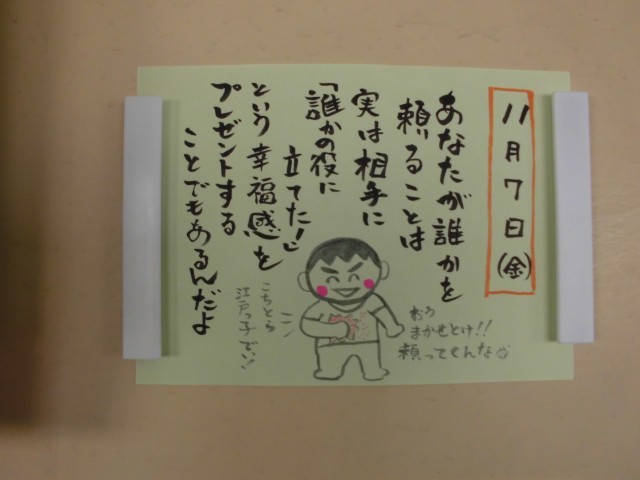 11月7日(金)
あなたが誰かを
頼ることは
実は相手に
「誰かの役に
立てた!」
という幸福感を
プレゼントする
ことでもあるんだよ
おう
まかせとけ!!
頼ってくんな
こちとら
江戸っ子でい!